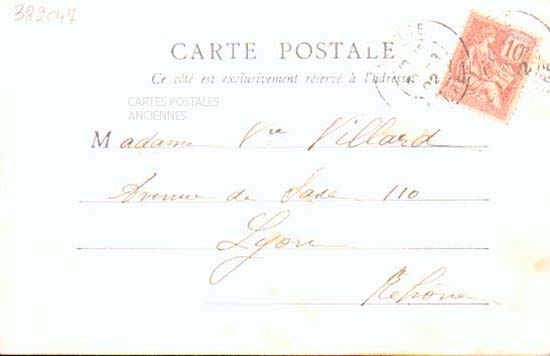 382047
CARTE POSTALE
Ce côté est exclusivement réservé à l'adresse
CARTES POSTALES
ANCIENNES
Madame Vve Villard
Avenue de Saxe 110
Lyon
Rhône
10